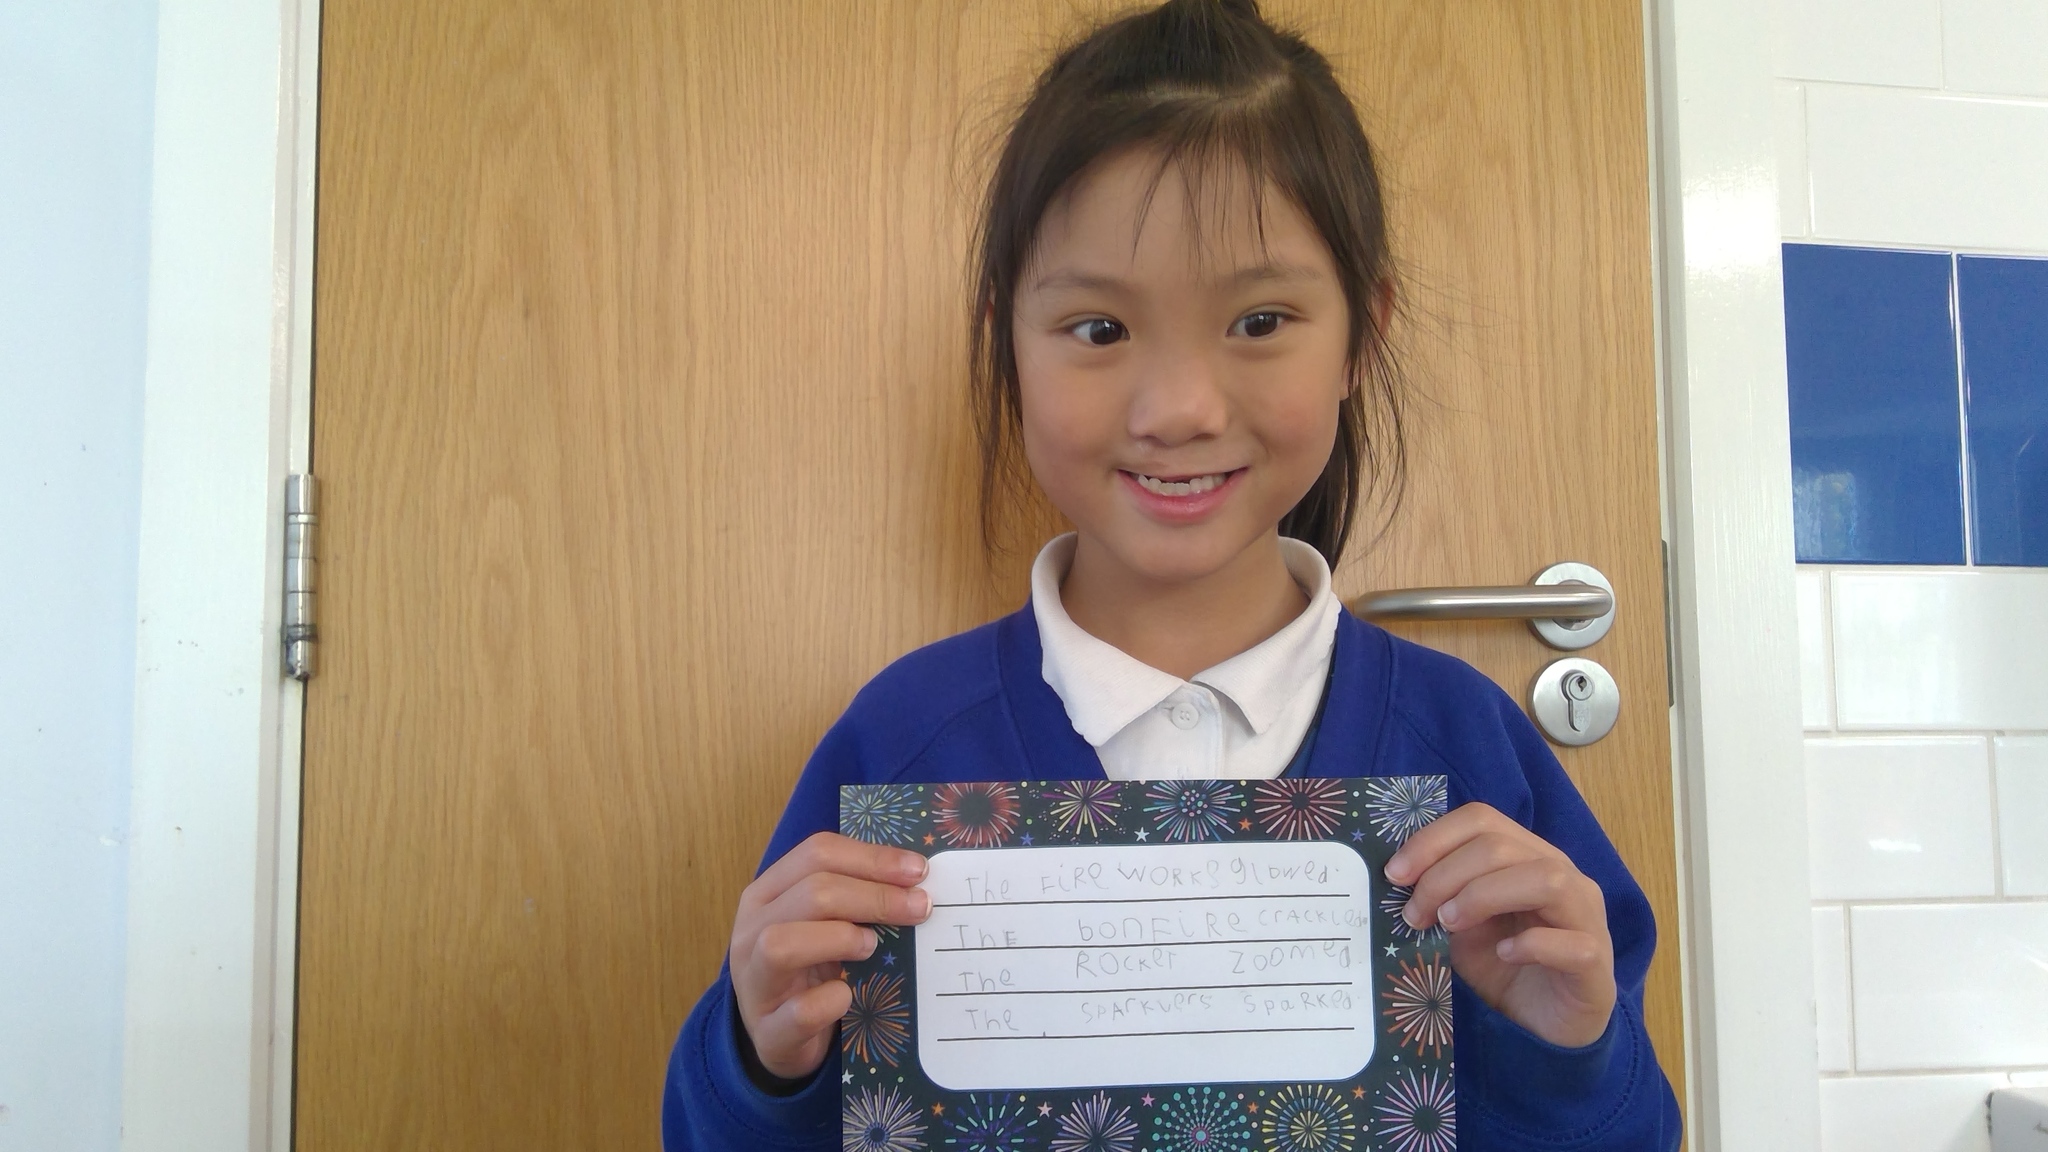 The FiRe WORKS glowed.
The bonFiRe cRACKled.
The ROcket zoomed.
The spArklers spaRked.